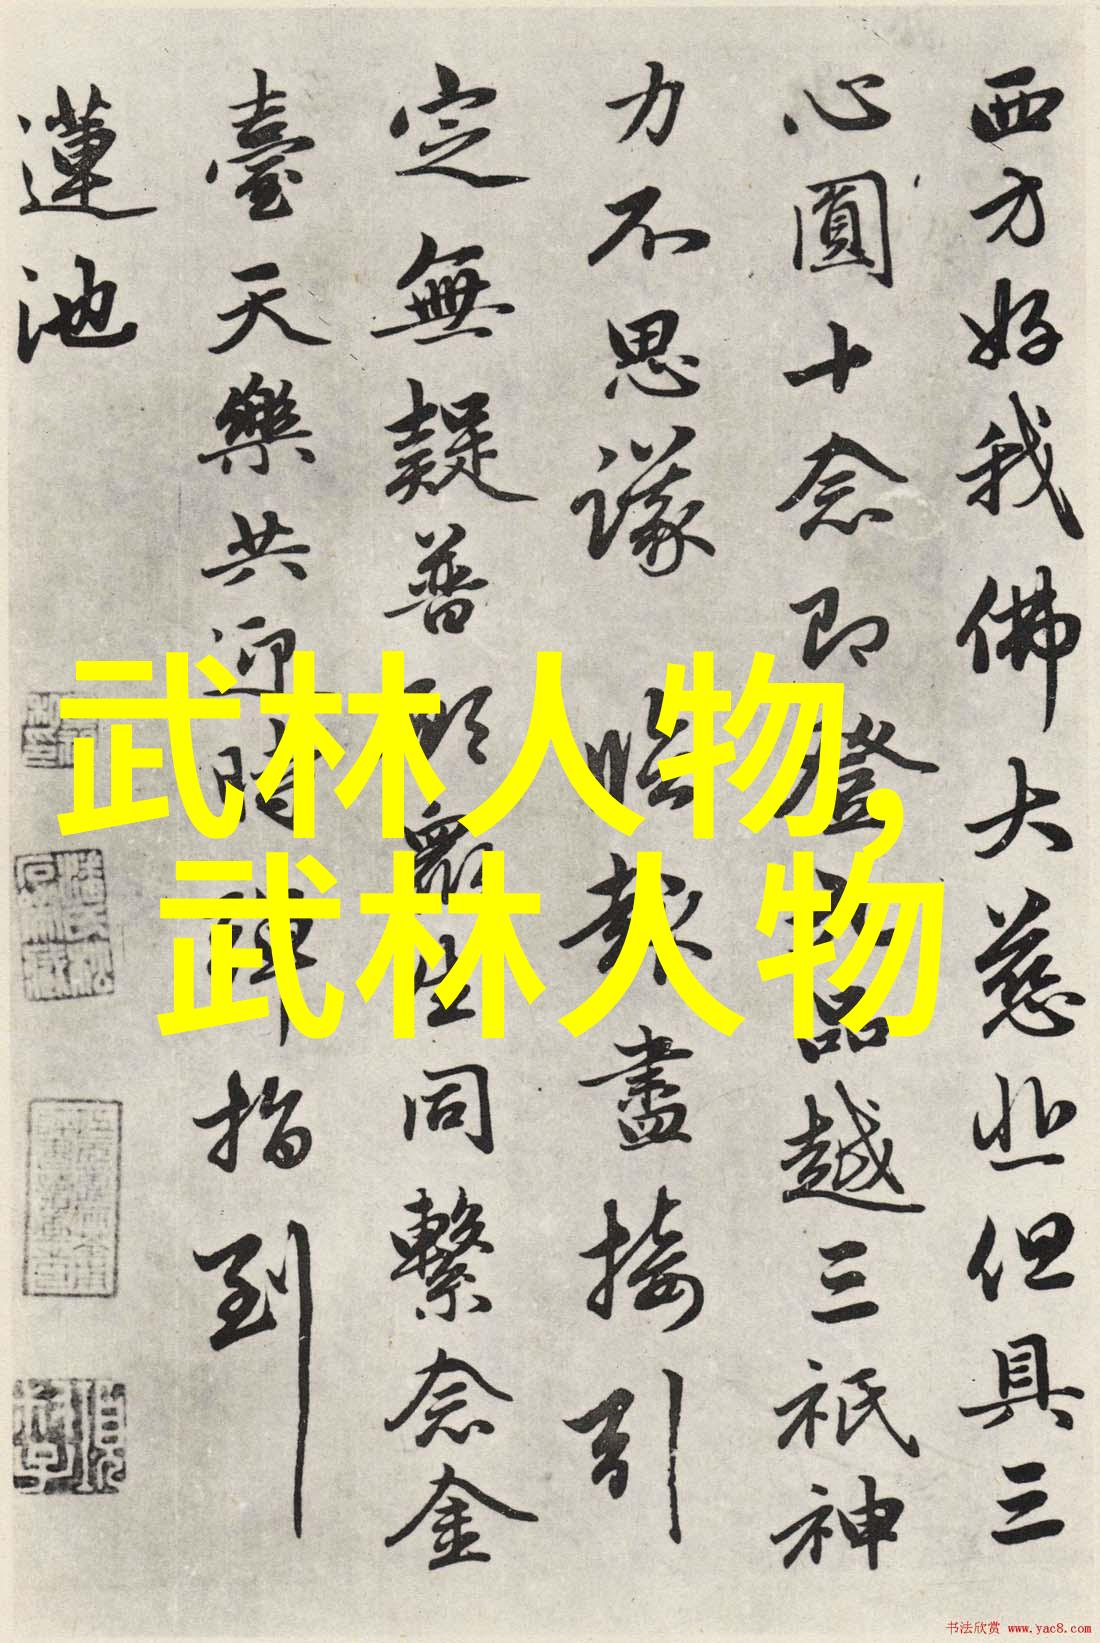 西方好我佛大慈悲但具三
心圓十念即登九品越三祇神
力不思議 臨報盡接引
定無疑普願眾生同繫念金
臺天樂共迎時彈指到
蓮池
武林人物,
武林人物
书法欣赏 www.yac8.com